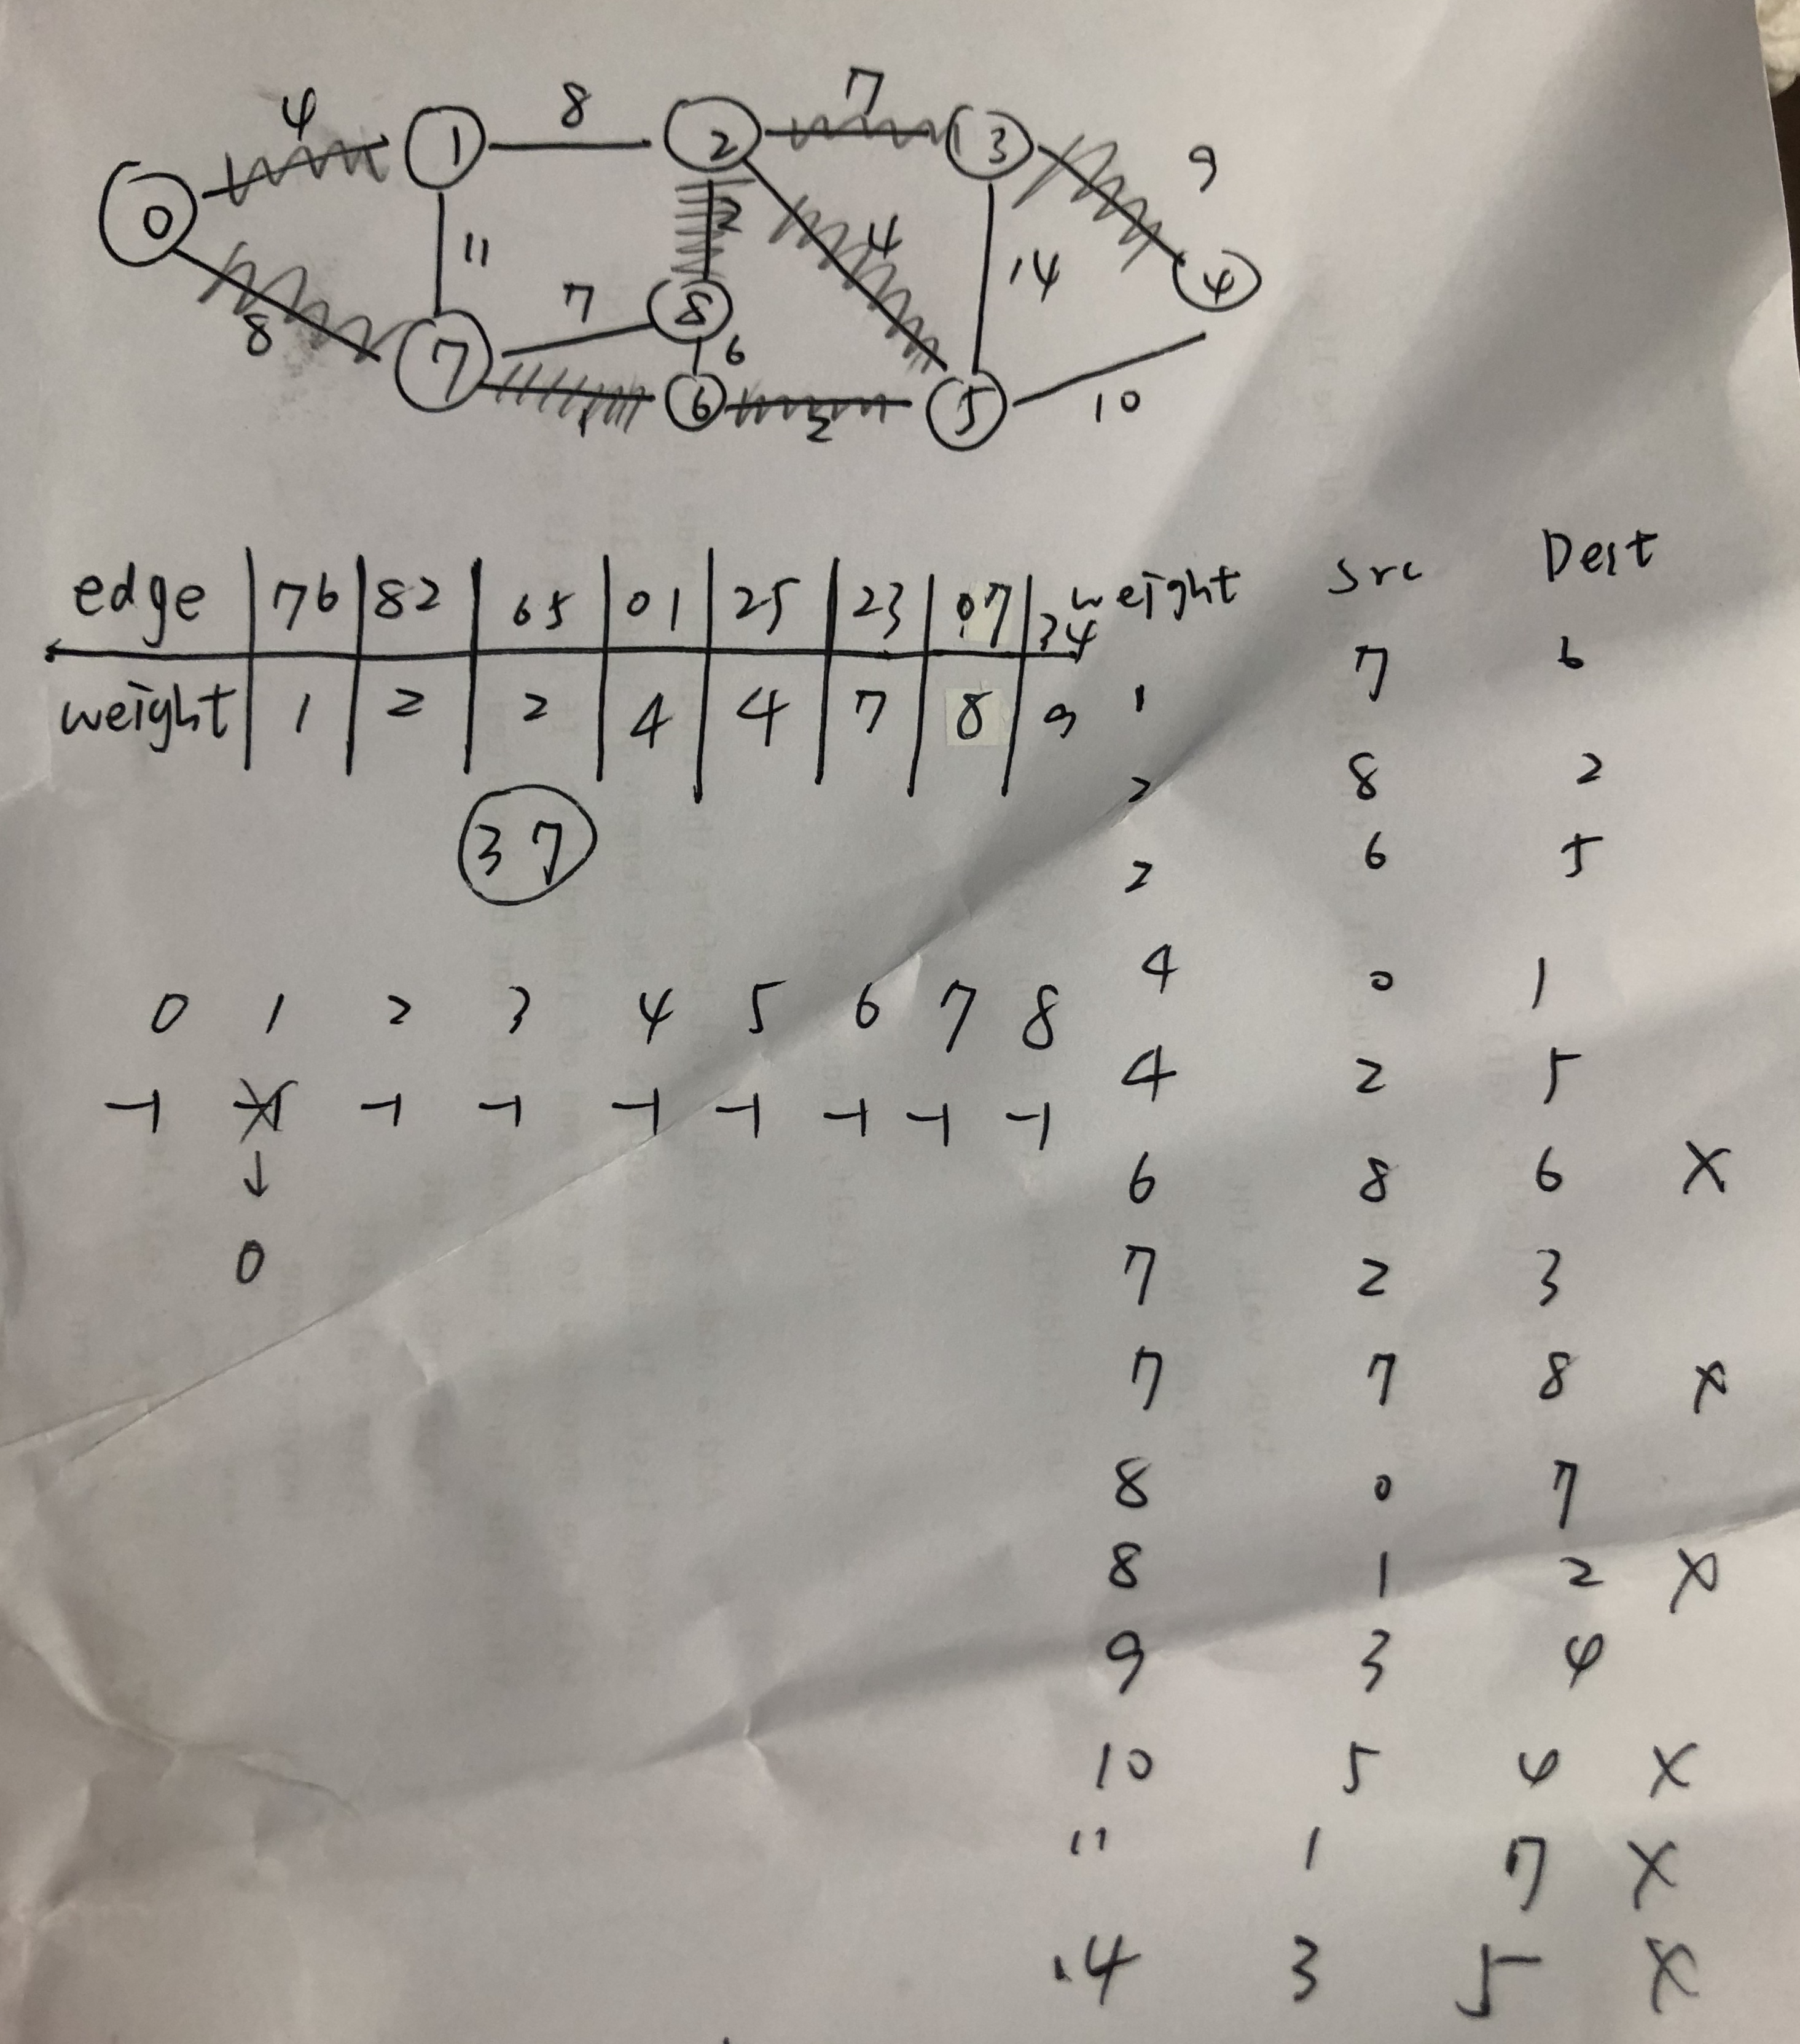 4 8 7 9
0 1 2 3
11 2 4 14 4
8 7 8 6
7 1 6 2 5 10
edge 76 82 65 01 25 23 07 34
weight 1 2 2 4 4 7 8 9
37
0 1 2 3 4 5 6 7 8
-1 -1 -1 -1 -1 -1 -1 -1 -1
↓
0
weight src Dest
1 7 6
2 8 2
2 6 5
4 0 1
4 2 5
6 8 6 X
7 2 3
7 7 8 X
8 0 7
8 1 2 X
9 3 4
10 5 4 X
11 1 7 X
14 3 5 X